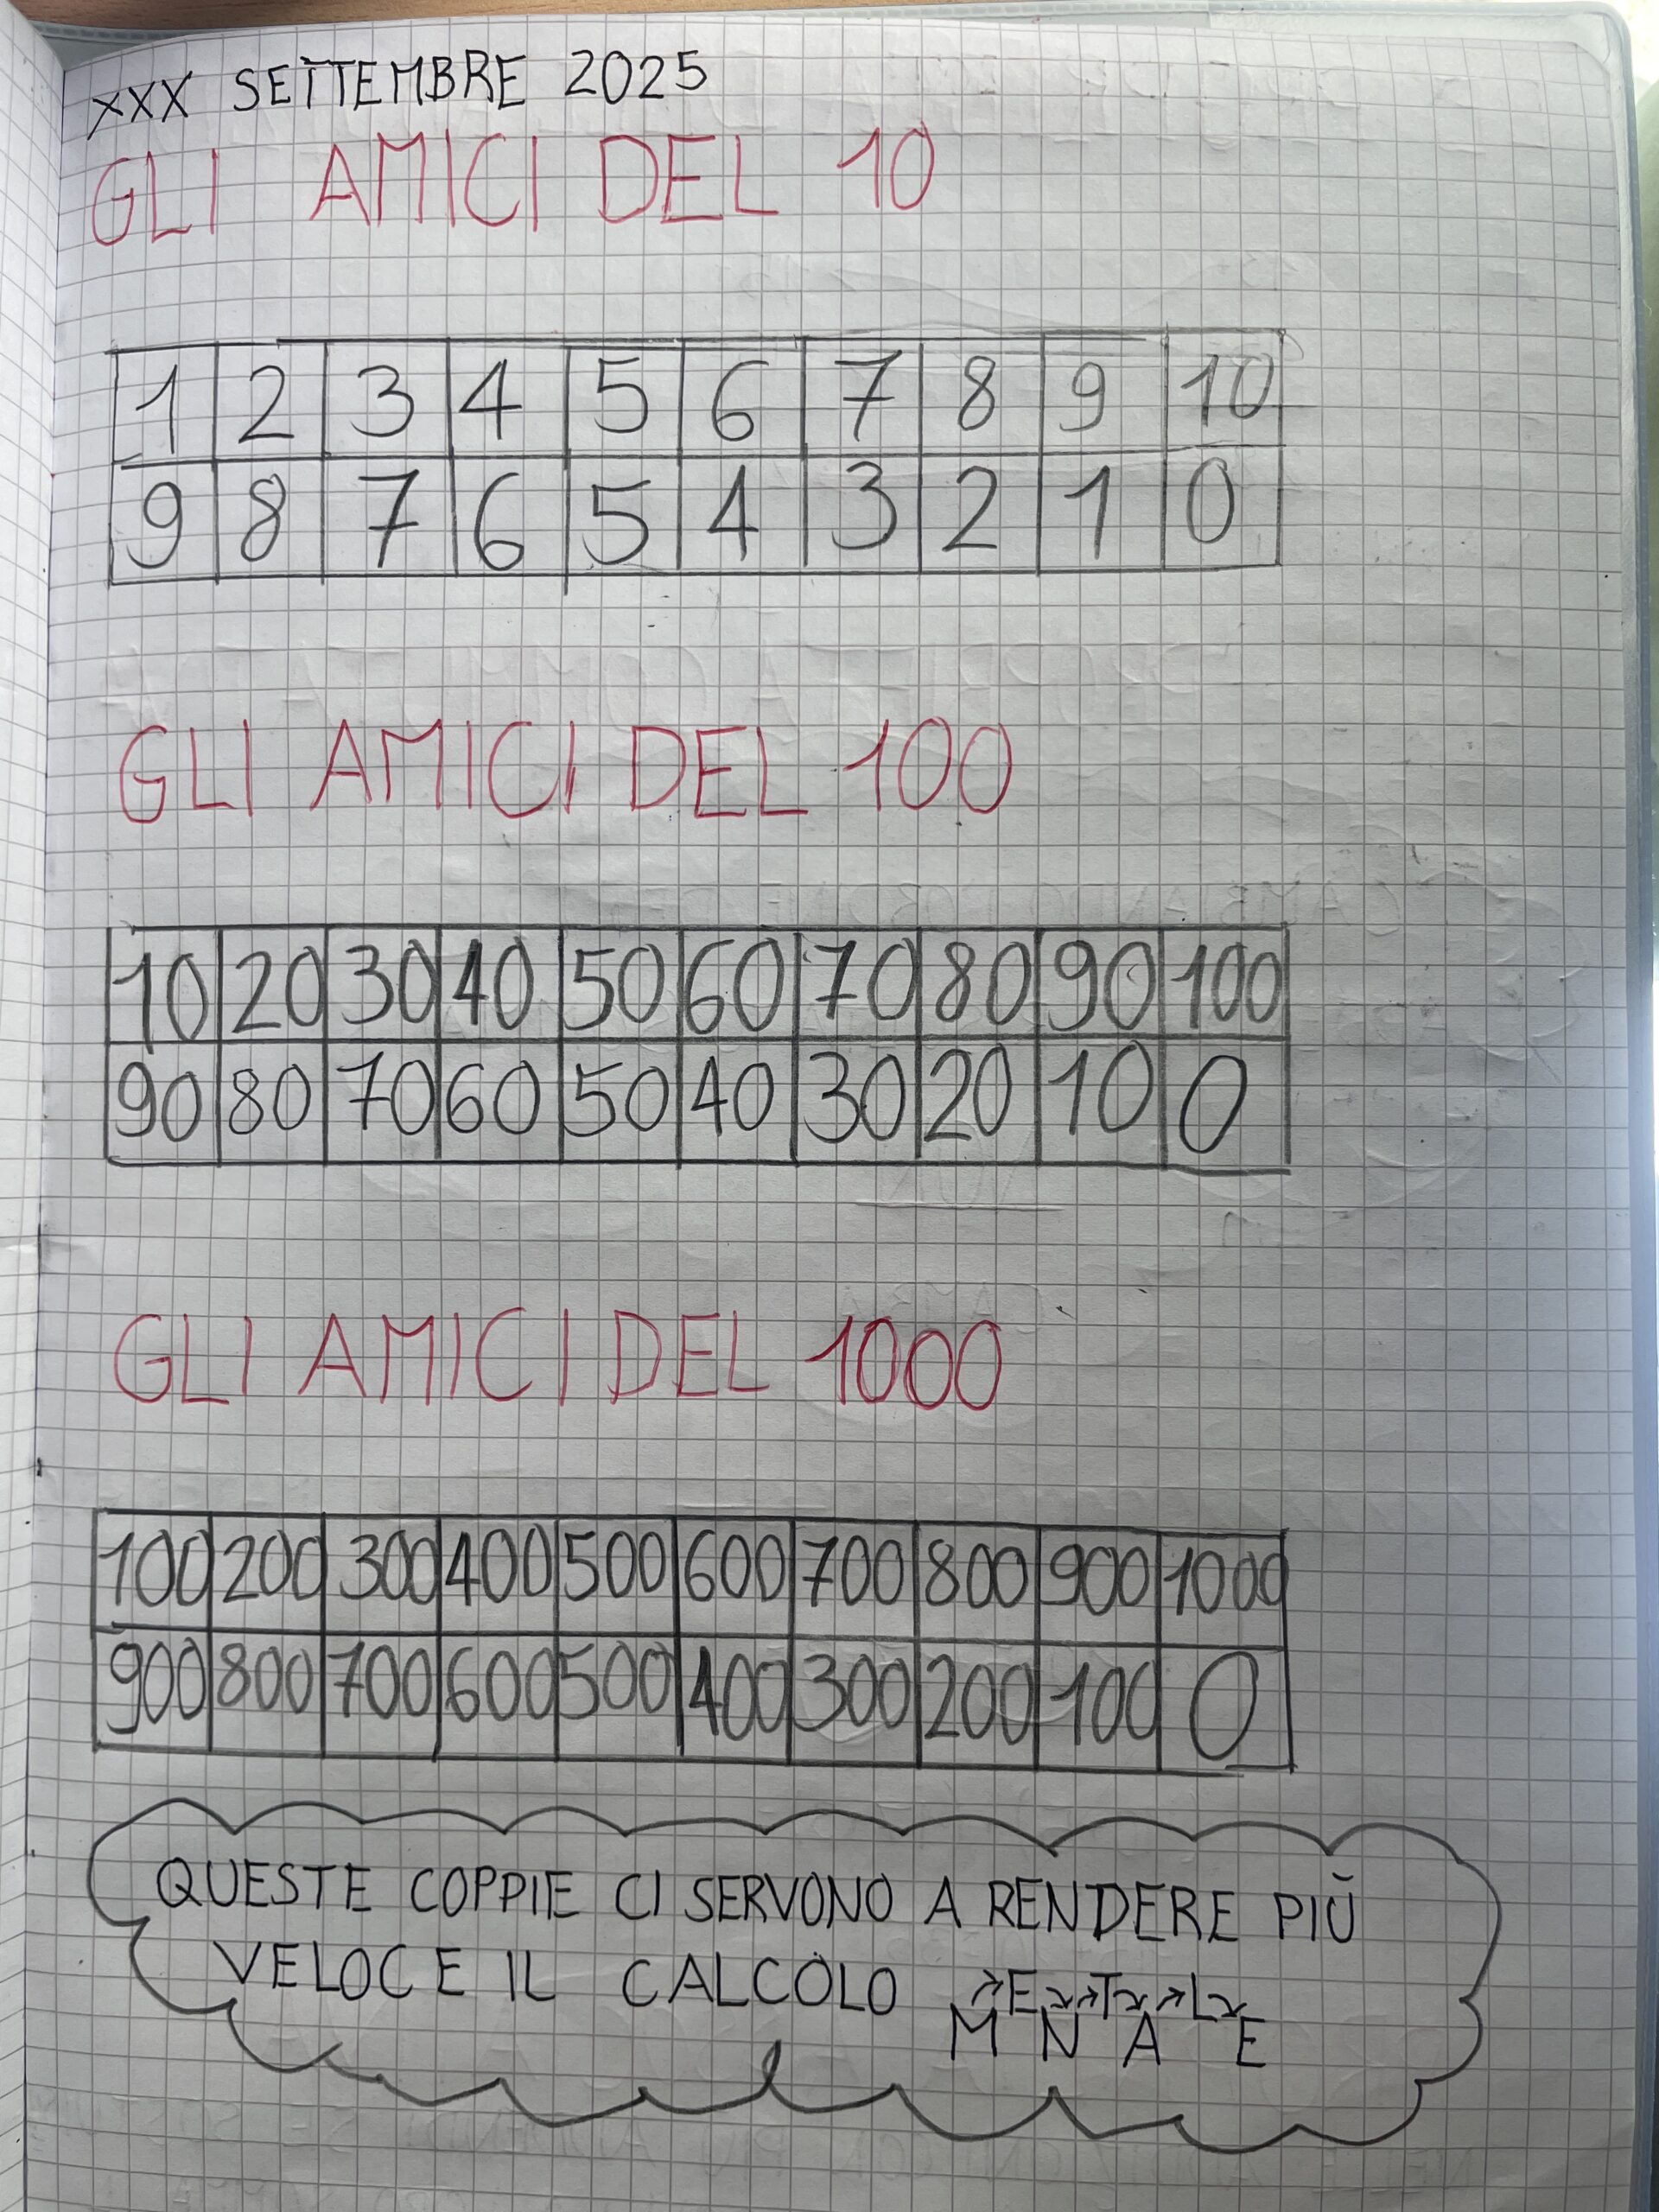 XXX SETTEMBRE 2025
GLI AMICI DEL 10
1 2 3 4 5 6 7 8 9 10
9 8 7 6 5 4 3 2 1 0
GLI AMICI DEL 100
10 20 30 40 50 60 70 80 90 100
90 80 70 60 50 40 30 20 10 0
GLI AMICI DEL 1000
100 200 300 400 500 600 700 800 900 1000
900 800 700 600 500 400 300 200 100 0
QUESTE COPPIE CI SERVONO A RENDERE PIÙ
VELOCE IL CALCOLO MENTALE